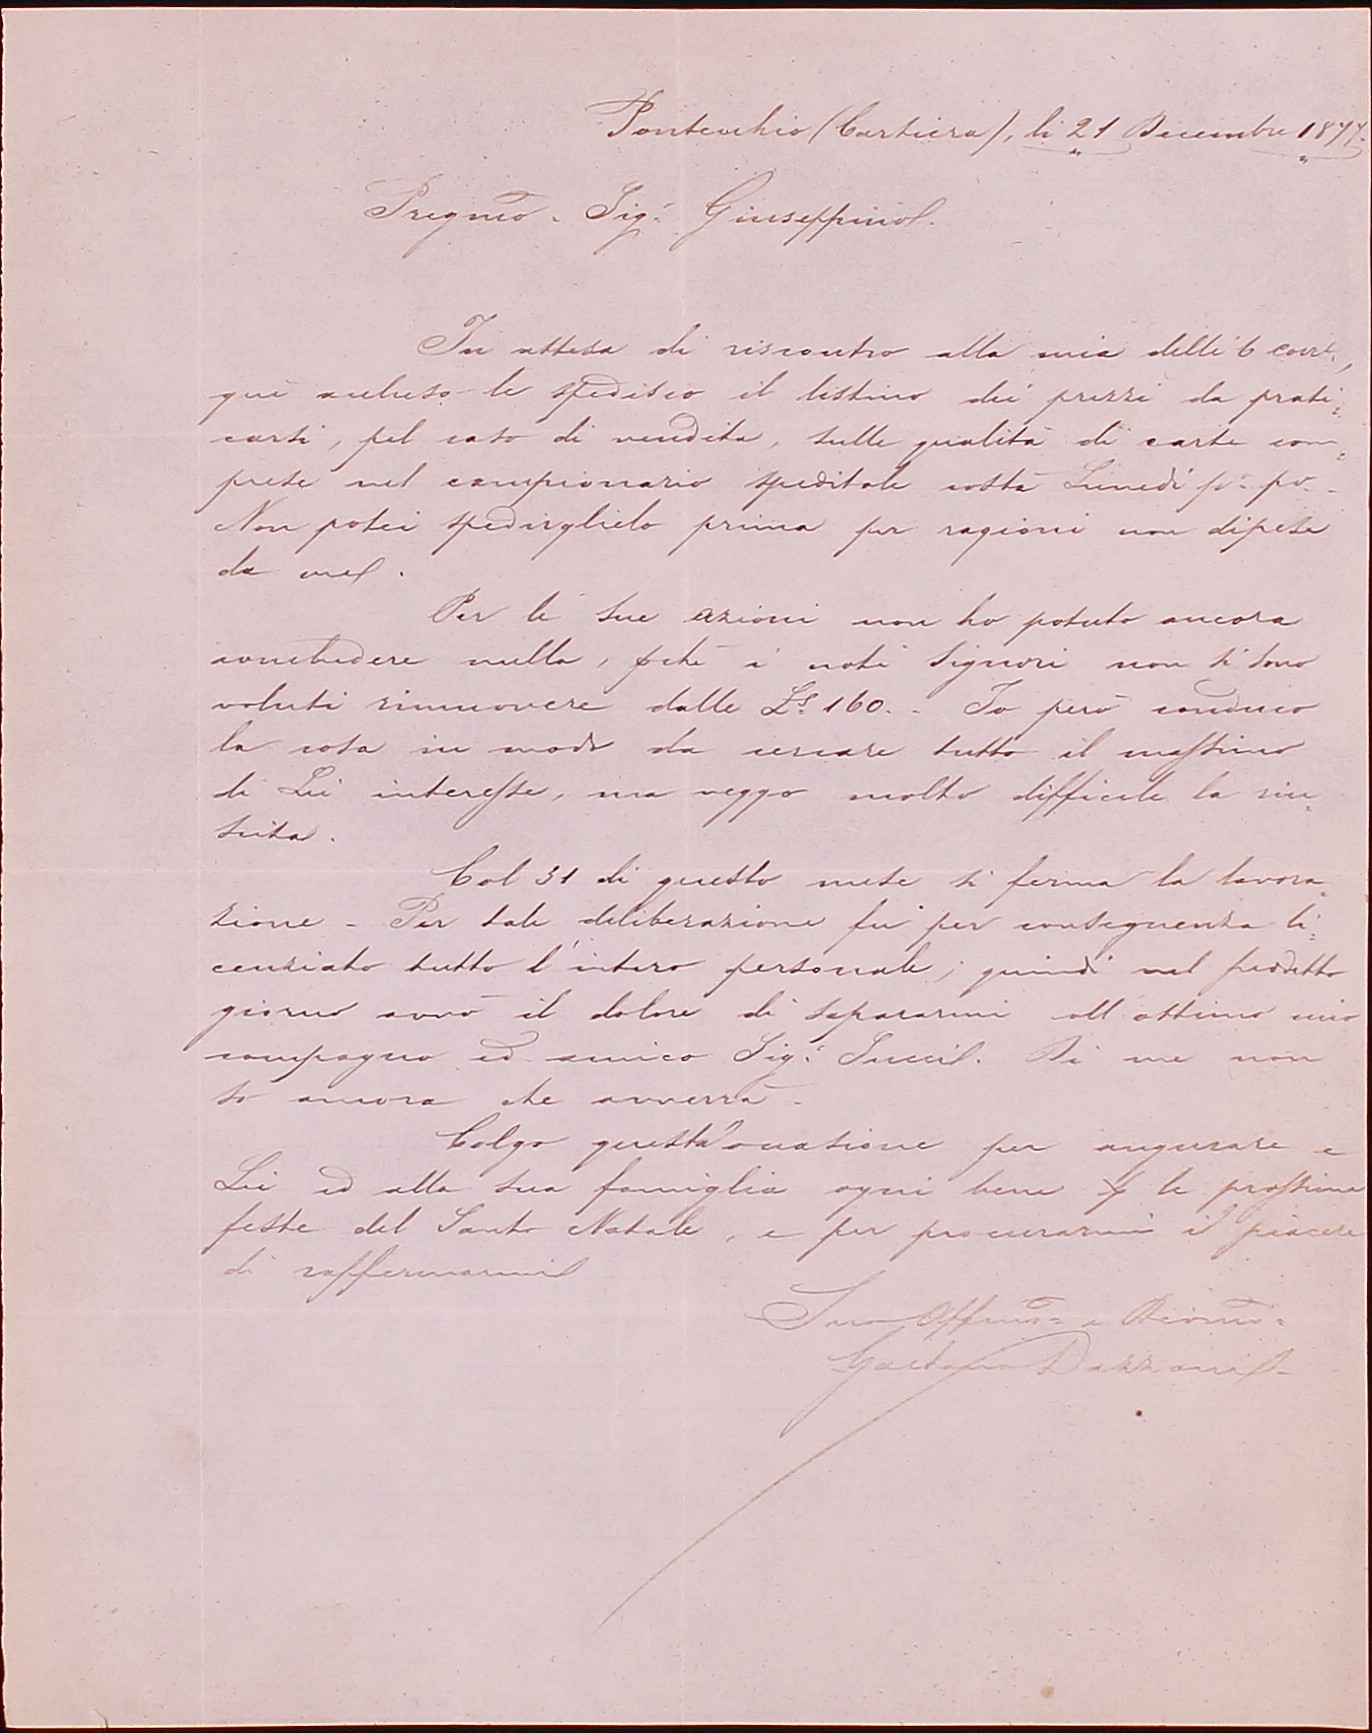 Pontecchio (Cartiera), li 21 Decembre 1877.
Pregmo. Sigr. Giuseppino.
In attesa di riscontro alla mia delli 6 corrte,
quì accluso le spedisco il listino dei prezzi da prati=
carsi, pel caso di vendita, sulle qualità di carte com=
prese nel campionario speditole costà Lunedì po. po. -
Non potei spedirglielo prima per ragioni non dipese
da me.
Per le sue azioni non ho potuto ancora
concludere nulla, pchè i noti Signori non si sono
voluti rimuovere dalle Ls. 160. - Io però conduco
la cosa in modo da cercare tutto il massimo
di Lei interesse, ma veggo molto difficile la riu=
scita.
Col 31 di questo mese si ferma la lavora=
zione - Per tale deliberazione fu per conseguenza li=
cenziato tutto l'intero personale; quindi nel suddetto
giorno avrò il dolore di separarmi all'ottimo mio
compagno ed amico Sigr. Succi. Di me non
so ancora che avverrà. -
Colgo quest'occasione per augurare a
Lei ed alla sua famiglia ogni bene p le prossime
feste del Santo Natale, e per procurarmi il piacere
di raffermarmi
Suo Affmo. e Devmo.
Gaetano Dazzani